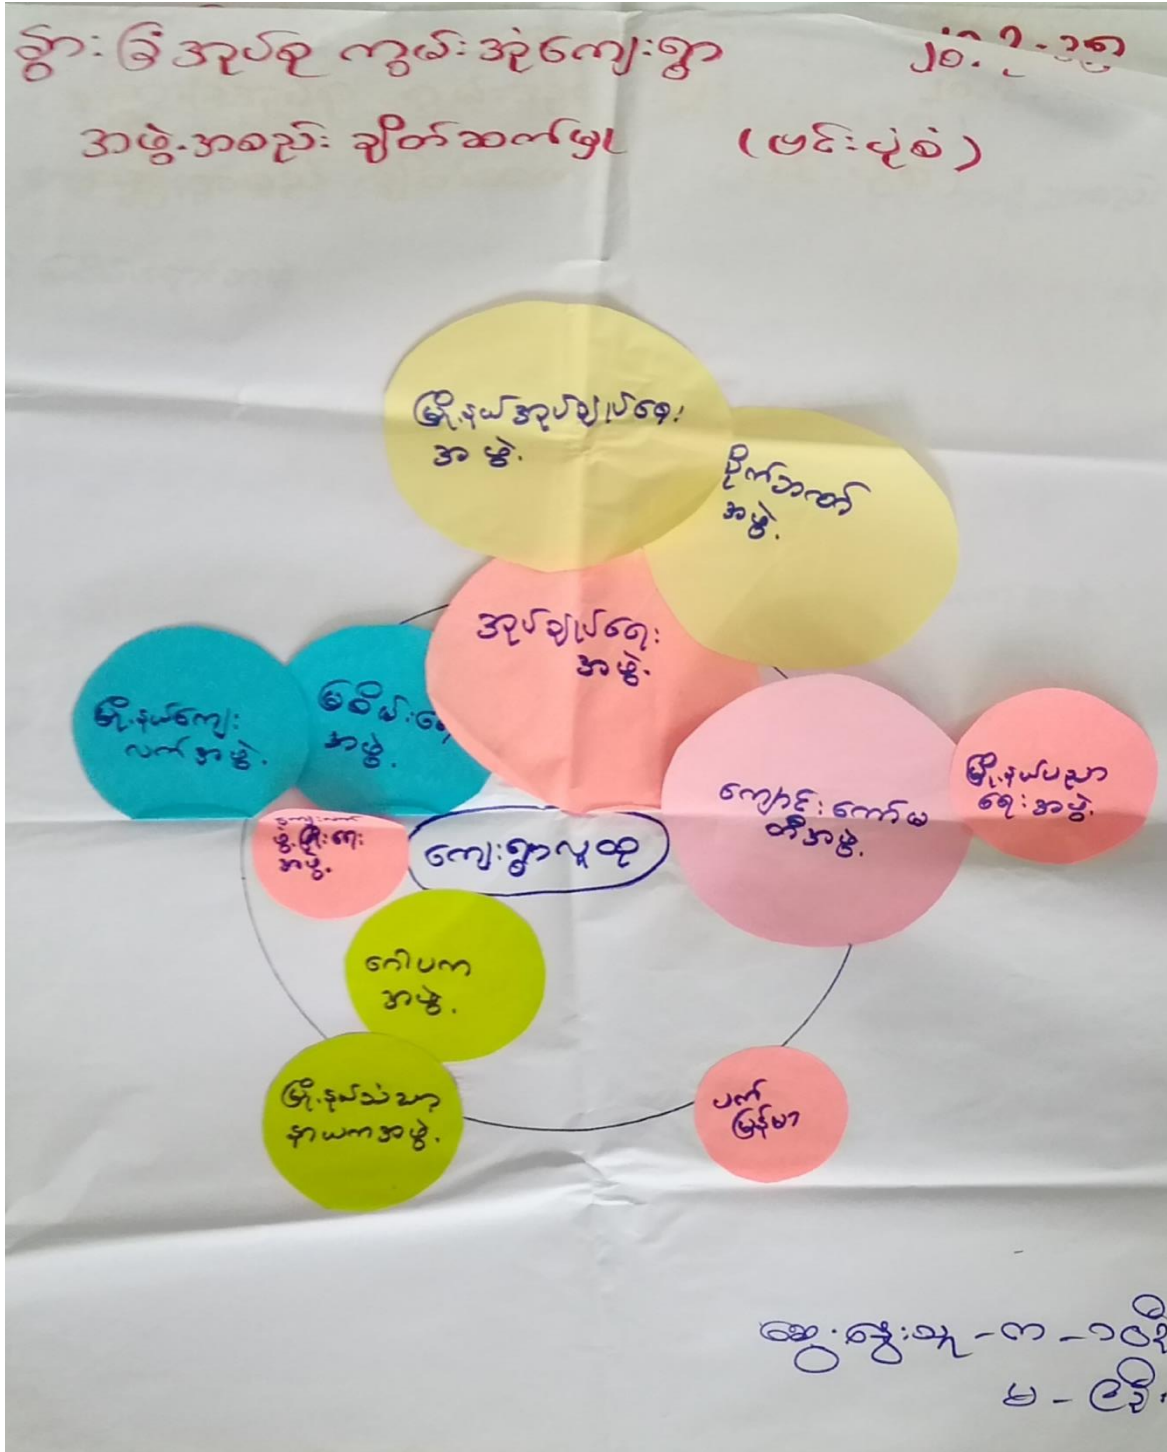 နွားခြံအုပ်စု ကွမ်းအုံကျေးရွာ
အဖွဲ့အစည်း ချိတ်ဆက်မှု (ဗင်းပုံစံ)
မြို့နယ်အုပ်ချုပ်ရေး
အဖွဲ့
စိုက်ဘဏ်
အဖွဲ့
အုပ်ချုပ်ရေး
အဖွဲ့
မြို့နယ်ကျေး
လက်အဖွဲ့
မြစိမ်းရောင်
အဖွဲ့
ကျောင်းကော်မ
တီအဖွဲ့
မြို့နယ်ပညာ
ရေးအဖွဲ့
ဖွံ့ဖြိုးရေး
အဖွဲ့
ကျေးရွာလူထု
ဂေါပက
အဖွဲ့
မြို့နယ်သံဃာ့
နာယကအဖွဲ့
ပက်
မြန်မာ
ဆွေးနွေးသူ - က - ၁၀ဦး
မ - ၉ဦး